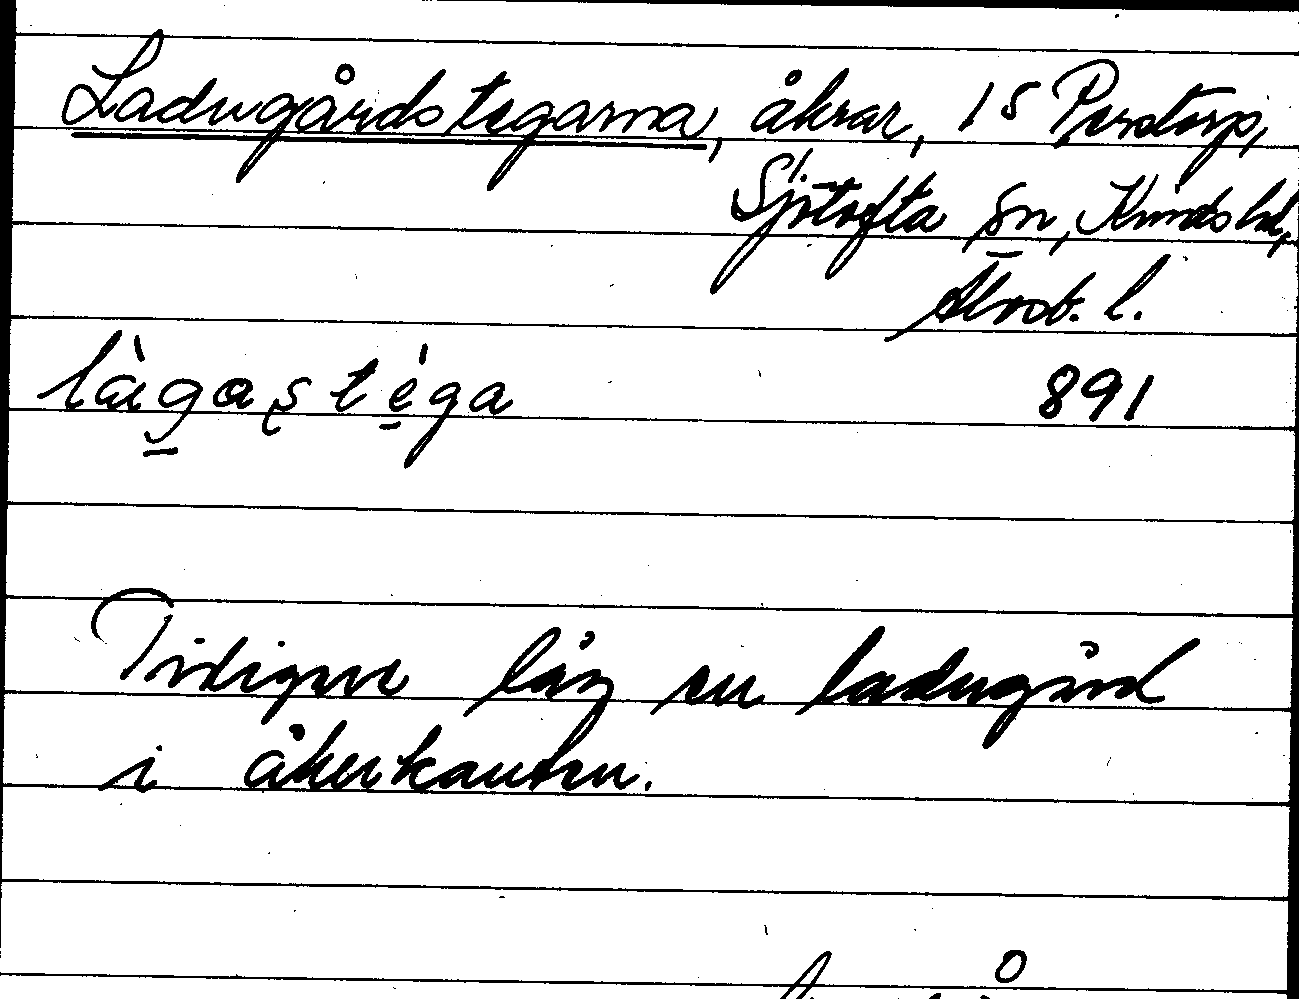 Ladugårdstegarna, åkrar, 1S Perstorp,
Sjötofta sn, Kinds hd,
Älvsb. l.
làgastéga 891
Tidigare låg en ladugård
i åkerkanten.